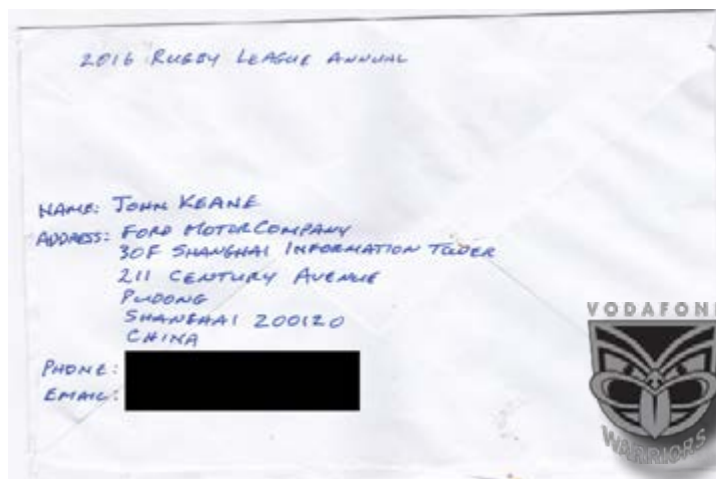 2016 RUGBY LEAGUE ANNUAL
NAME: JOHN KEANE
ADDRESS: FORD MOTOR COMPANY
30F SHANGHAI INFORMATION TOWER
211 CENTURY AVENUE
PUDONG
SHANGHAI 200120
CHINA
PHONE:
EMAIL:
VODAFON
WARRIORS